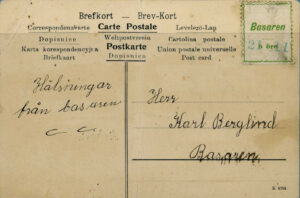 Brefkort — Brev-Kort
Correspondenzkarte Carte Postale Levelező-Lap
Dopisnice Weltpostverein Cartolina postale
Karta korespondencyjna Postkarte Union postale universelle
Briefkaart Dopisnica Post card
Basaren
2 öre
Hälsningar
från basaren
Herr
Karl Berglind
Basaren